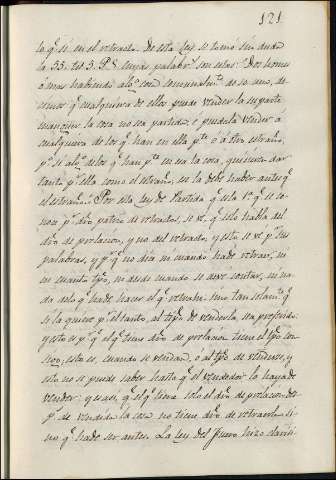 121
lo q.e sí en el retracto. De esta Ley se tomó sin duda
la 55. tit 5. P.5 cuyas palabr.s son estas: Dos homes
ó mas habiendo alg.a cosa comunalm.te de so uno, de-
cimos q.e cualquiera de ellos puede vender la su parte
maguer la cosa no sea partida, e puedela vender á
cualquiera de los q.e han en ella p.te ó á otro estraño,
p.o si alg.o de los q.e han p.te en la cosa, quisiere dar
tanto p.r ella como el estraño, ese la debe haber antes q.e
el estraño. Por esta ley de Partida q.e es la 1.a q.e se co-
noce p.r dro patrio de retractos, se ve, q.e solo habla del
dro de prelacion, y no del retracto, y esto se ve p.r sus
palabras, y p.r q.e no dia ni cuando hade retraer, ni
en cuanto tpo, ni desde cuando se debe contar, ni na-
da de lo q.e hade hacer el q.e retrahe. sino tan solam.te q.e
si la quiere p.r el tanto, al tpo de venderla sea preferido:
y esto es p.r q.e el q.e tiene dro de prelacion tiene el tpo con-
sigo, esto es, cuando se venden, ó al tpo de venderse, y
esto no se puede saber hasta q.e el vendedor la haya de
vender: y asi, q.e el q.e tiene solo el dro de prelacion des-
p.s de vendida la cosa no tiene dro de retraerla si-
no q.e hade ser antes. La ley del Fuero hizo clarisi-